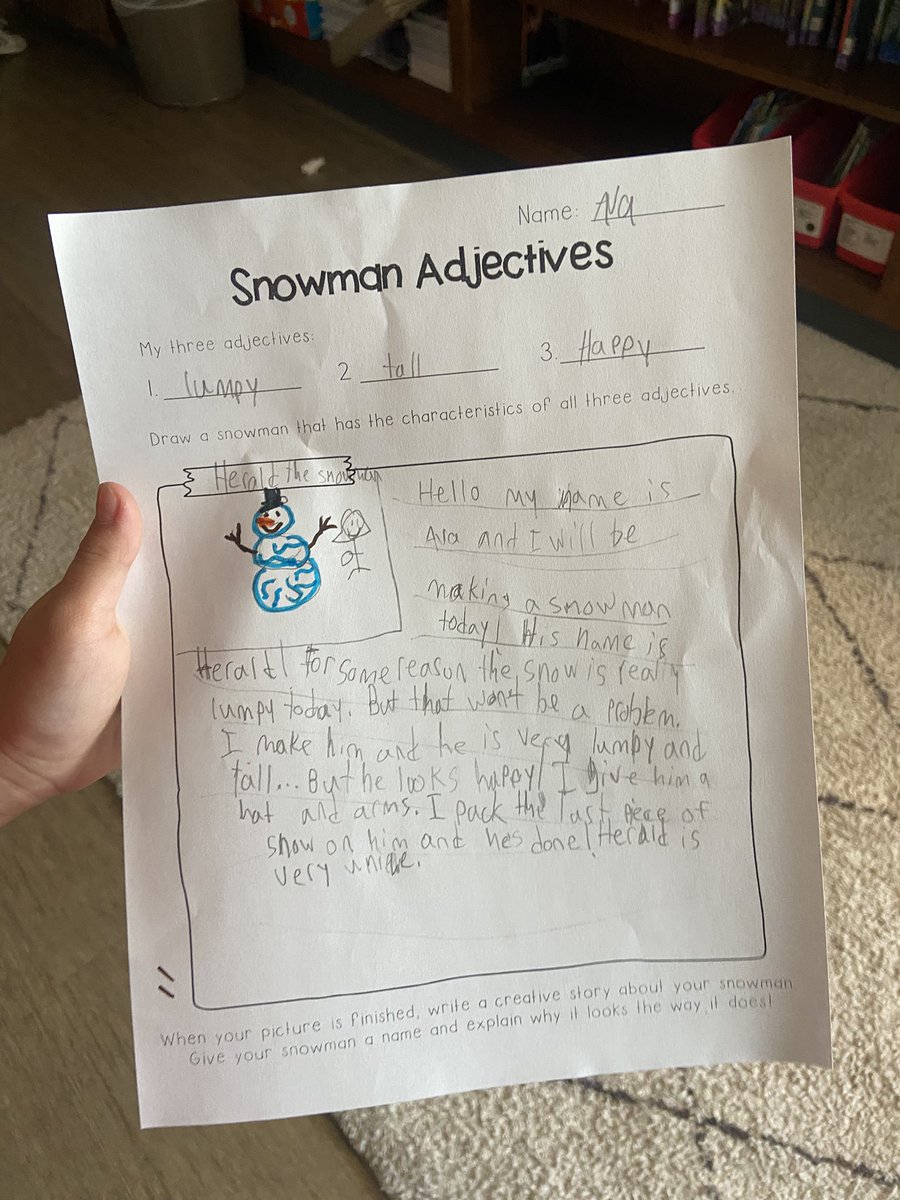 Name: Ava
Snowman Adjectives
My three adjectives:
1. lumpy 2 tall 3. Happy
Draw a snowman that has the characteristics of all three adjectives.
Herald the snowman
Hello my name is
Ava and I will be
making a snowman
today! His name is
Herald! For some reason the snow is really
lumpy today. But that won't be a problem.
I make him and he is very lumpy and
tall... But he looks happy! I give him a
hat and arms. I pack the last piece of
snow on him and hes done! Herald is
very unique.
When your picture is finished, write a creative story about your snowman
Give your snowman a name and explain why it looks the way it does!